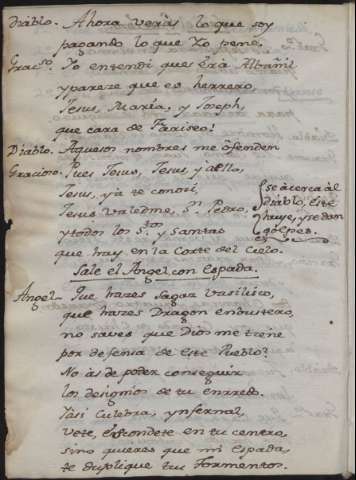 Diablo. Ahora verás lo que soy
pagando lo que Yo pene,
Gracso. Yo entendi ques Era Albañil
y parece que es herrero,
Jesus, Maria, y Joseph,
que cara de Fariseo!
Diablo. Aquesos nombres me ofenden
Gracioso. Pues Jesus, Jesus, y a ello,
Jesus, ya te conosi,
Jesus valedme, Sn. Pedro,
y todos los Stos. y santas
que hay en la Corte del Cielo.
se acerca al
Diablo, Este
huye, y se dan
golpes.
Sale el Angel con Espada.
Angel. Que hazes Sagaz Vasilisco,
que hazes Dragon endustero,
no saves que Dios me tiene
por defensa de Este Pueblo?
No ás de poder conseguir
los designios de tu enrredo.
Yasi Culebra, ynfernal,
vete, escondete en tu centro,
sino quieres que mi Espada,
te duplique tus Tormentos.